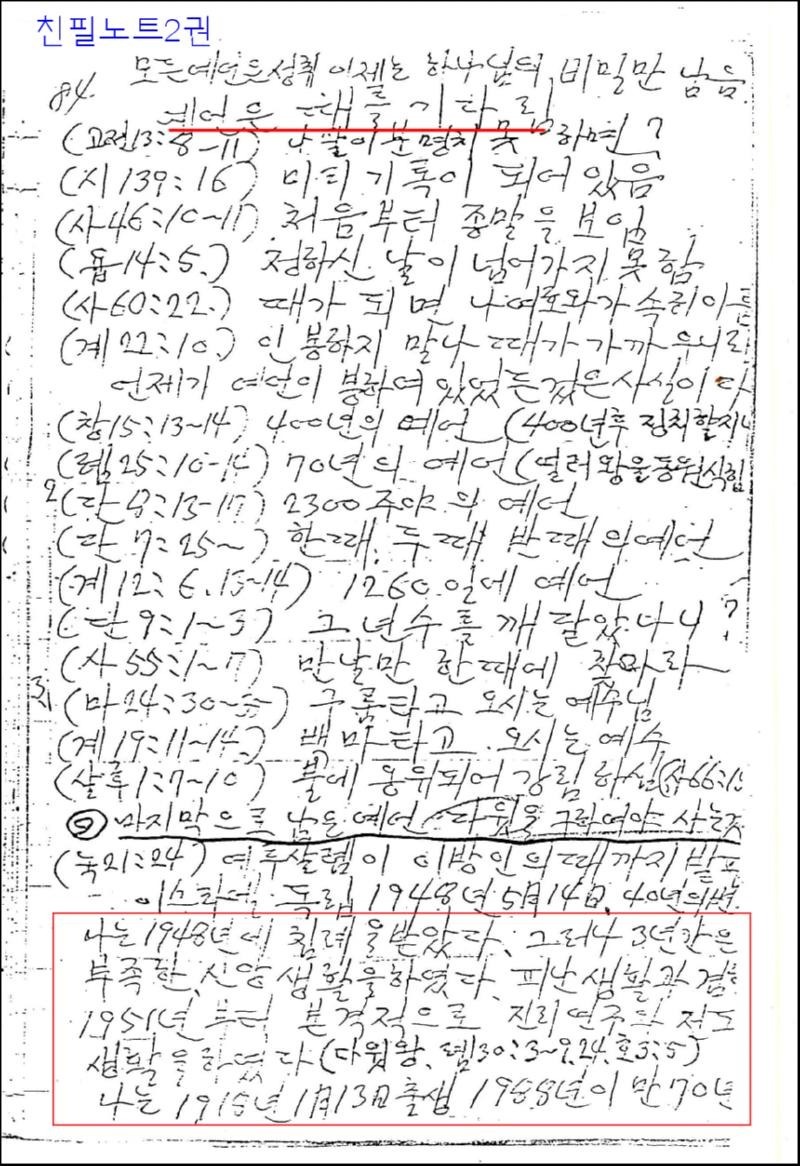 친필노트2권
모든예언은성취 이제는 하나님의 비밀만 남음
84. 예언은 때를 기다림
(고전13:8-11) 나팔이분명치 못하면?
(시139:16) 미리기록이 되어있음
(사46:10~11) 처음부터 종말을 보임
(욥14:5.) 정하신 날이 넘어가지못함
(사60:22.) 때가 되면 나여호와가 속히이
(계22:10.) 인봉하지 말나 때가 가까우니라
언제가 예언이 봉하여 있었든것은사실이다
(창15:13~14) 400년의 예언 (400년후 징치할지
(렘25:10-14) 70년의 예언
2 (단8:13-17) 2300주야의 예언
(단7:25~) 한때, 두때 반때의예언
(계12:6.13~14) 1260일에 예언
(단9:1~3) 그년수를깨달았나니?
(사55:1~7) 만날만한때에 찾아라
3. (마24:30~) 구름타고 오시는예수님
(계19:11~14.) 백마타고 오시는예수
(살후1:7~10) 불에 옹위되어강림하심(사66:1
마지막으로남은예언 다윗을 구하여야 사는
(눅21:24) 예루살렘이 이방인의때까지
이스라엘 독립 1948년 5月14日. 40년의
나는1948년에 침례을받았다. 그러나 3년간은
부족한 신앙생활을하였다. 피난생활과
1951년부터 본격적으로 진리연구와 전도
생활을하였다(다윗왕. 렘30:3~9.24. 호3:5)
나는1918년1月13日출생 1988년이만70년